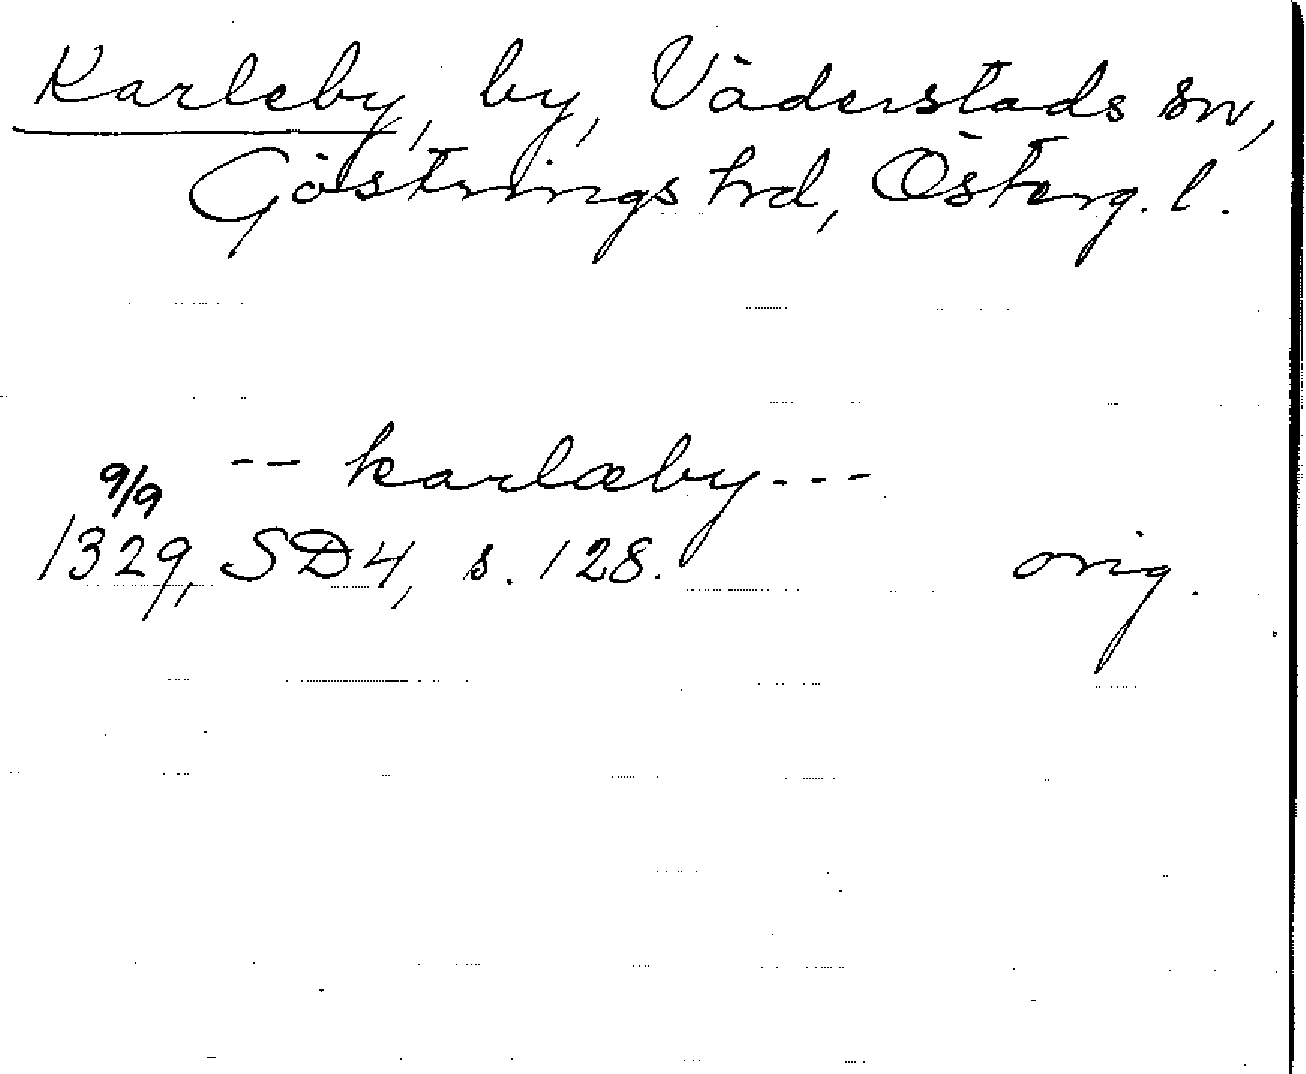 Karleby, by, Väderstads sn,
Göstrings hrd, Österg. l.
-- karlæby ---
9/9
1329, SD4, s. 128. orig.